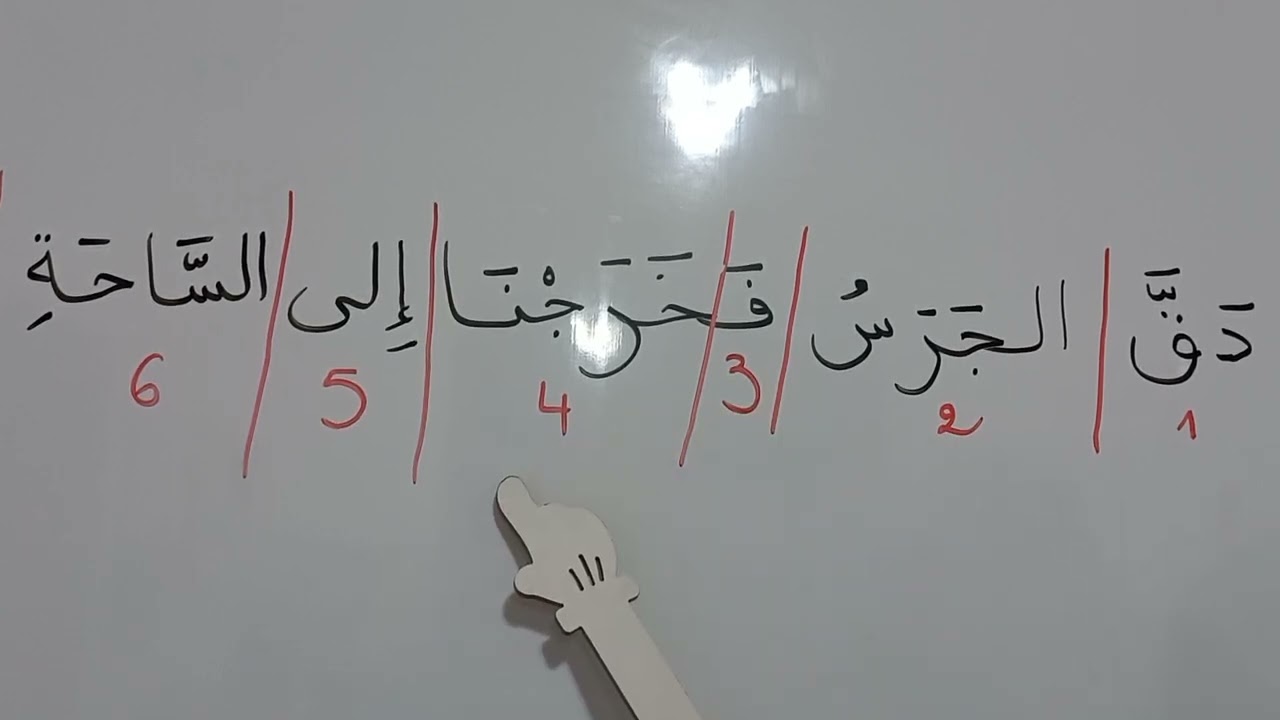 دَقَّ / الجَرَسُ / فَ / خَرَجْنَا / إِلى / السَّاحَةِ
1 2 3 4 5 6